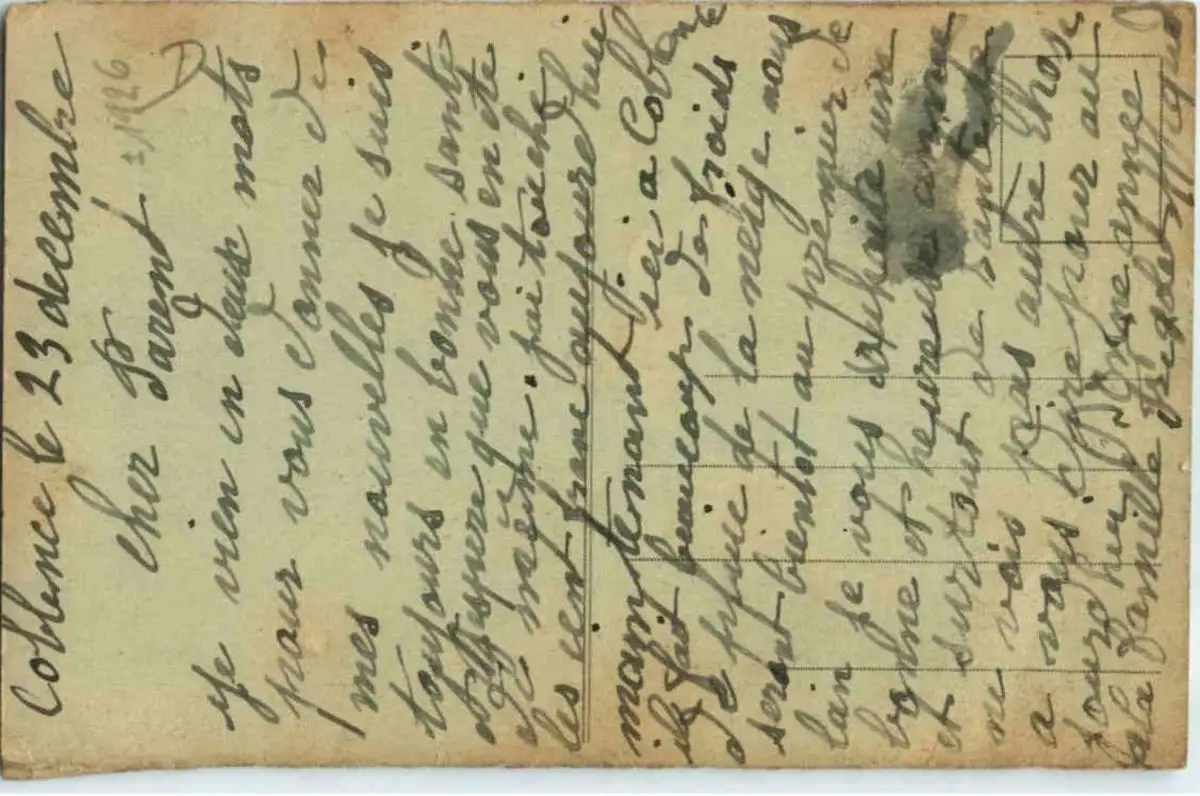 Coblence le 23 decembre
± 1926
cher Parent
je vien en deux mots
pour vous donner de
mes nouvelles je suis
toujours en bonne santé
et j'espere que vous en ete
de maeme. j'ai touché
les cent franc aujourd hui
maintenant ici a Coblence
il fait beaucoup de froids
de pluie de la neige nous
seront bientot au premier de
lain je vous souhaite une
bonne et heureuse année
et surtout de santé
ne vois pas autre chose
a vous dire pour au
jourd hui
la famille